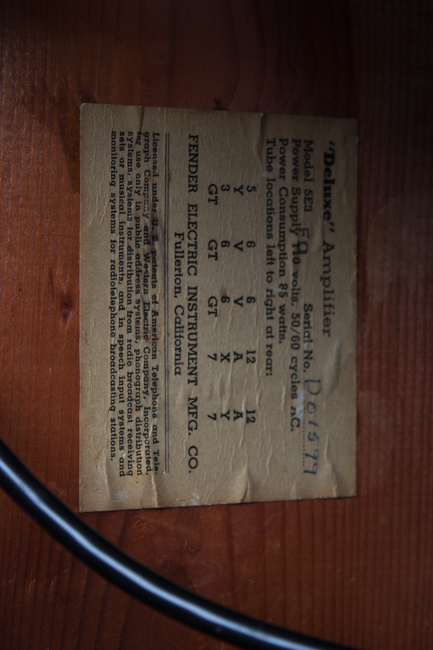 "Deluxe" Amplifier
Model 5E3 Serial No.
Power Supply 110 volts, 50/60 cycles AC.
Power Consumption 85 watts.
Tube locations left to right at rear:
5 6 6 12 12
Y V V A A
3 6 6 X Y
GT GT GT 7 7
FENDER ELECTRIC INSTRUMENT MFG. CO.
Fullerton, California
Licensed under U. S. patents of American Telephone and Tele-
graph Company and Western Electric Company, Incorporated,
for use only in public address systems, phonograph distribution
systems, systems for distribution from radio broadcast receiving
sets or musical instruments, and in speech input systems and
monitoring systems for radiotelephone broadcasting stations.